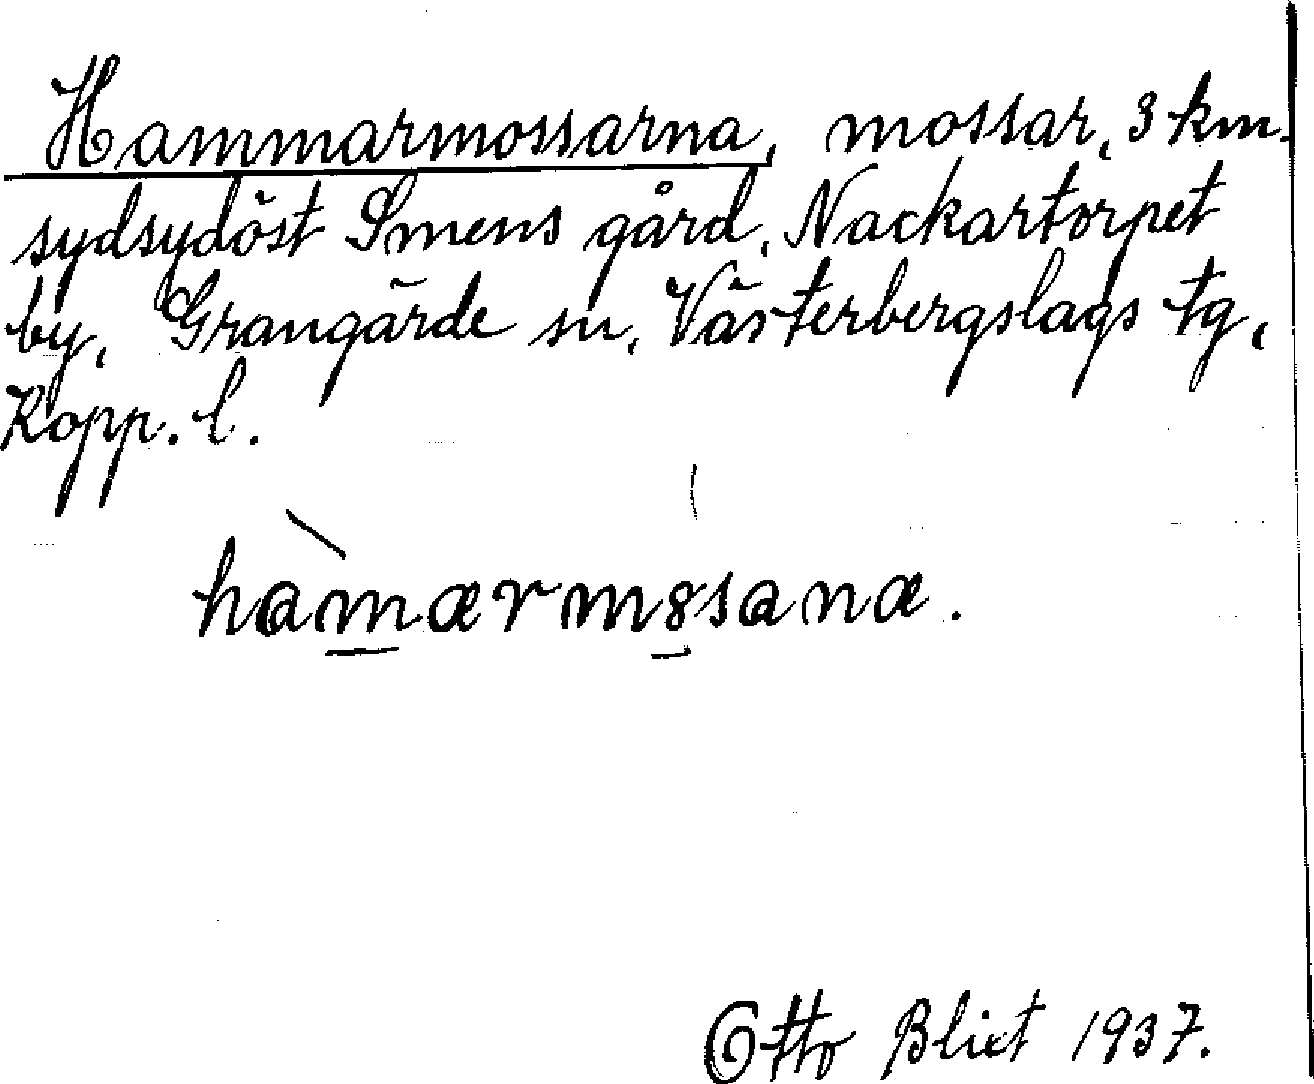 Hammarmossarna, mossar, 3 km.
sydsydöst Smens gård, Nackartorpet
by, Grangärde sn, Västerbergslags tg,
Kopp. l.
hàmærm8sanæ.
Otto Blixt 1937.